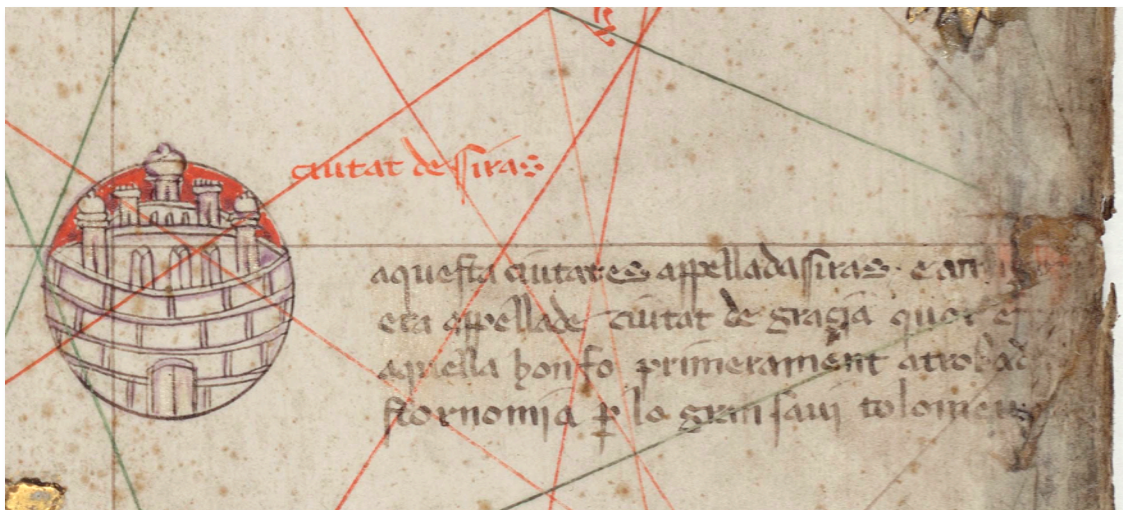 ciutat de siras
aquesta ciutat es appellada siras · e
era appellade ciutat de gracia quor
aquella hon fo primerament atrobad
stornomia p lo gran savi tolomeu